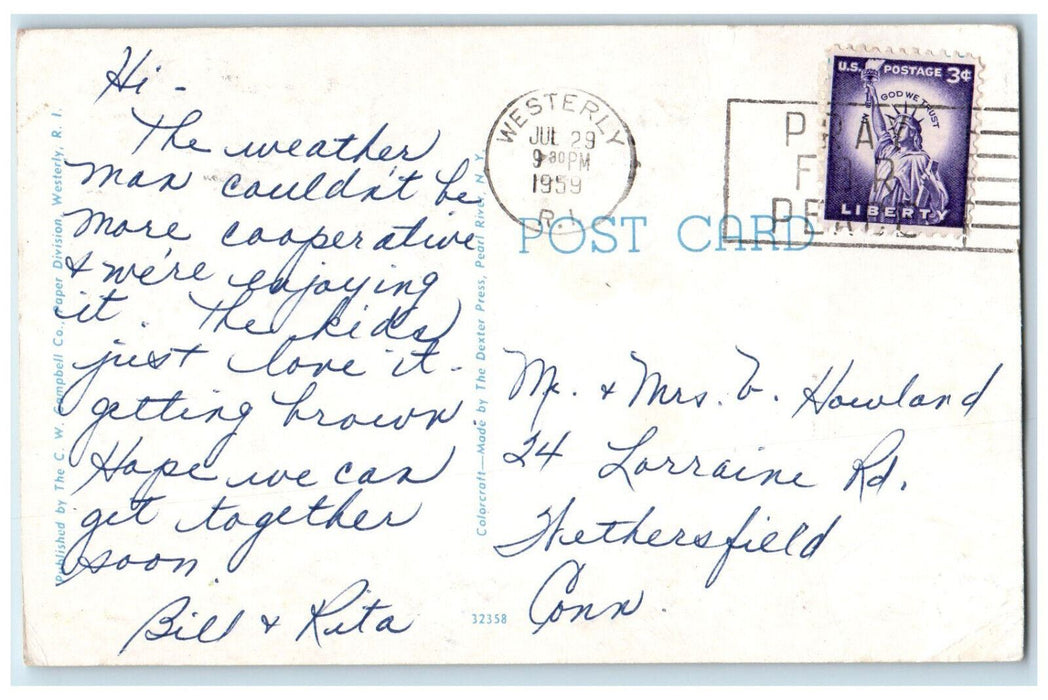 Hi -
The weather
man couldn't be
more cooperative
& we're enjoying
it. The kids
just love it -
getting brown
Hope we can
get together
soon
Bill & Rita
Published by The C. W. Campbell Co., Paper Division, Westerly, R. I.
Colorcraft—Made by The Dexter Press, Pearl River, N. Y.
32358
WESTERLY
JUL 29
9 30 PM
1959
R.I.
PRAY
FOR
PEACE
U.S. POSTAGE 3¢
IN GOD WE TRUST
LIBERTY
POST CARD
Mr. & Mrs. V. Howland
24 Lorraine Rd.
Wethersfield
Conn.